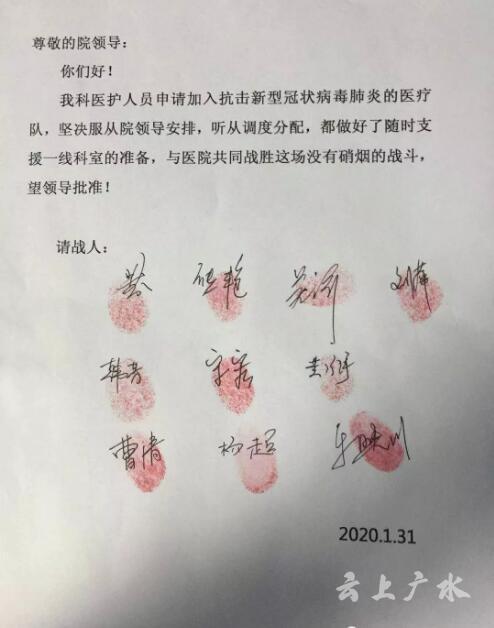 尊敬的院领导：
你们好！
我科医护人员申请加入抗击新型冠状病毒肺炎的医疗
队，坚决服从院领导安排，听从调度分配，都做好了随时支
援一线科室的准备，与医院共同战胜这场没有硝烟的战斗，
望领导批准！
请战人：
曹清 杨超
2020.1.31
云上广水